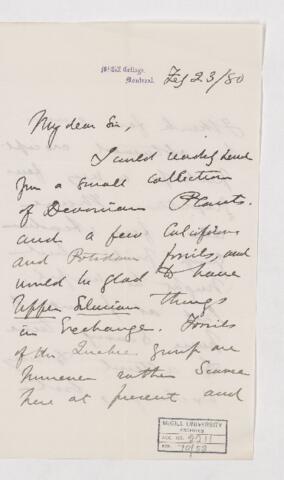 McGill College,
Montreal.
Feb 23/80
My dear Sir,
I could readily send
you a small collection
of Devonian Plants.
and a few Calciferous
and Potsdam fossils, and
would be glad to have
Upper Silurian things
in Exchange. Fossils
of the Quebec group are
however rather Scarce
here at present and
McGILL UNIVERSITY
ARCHIVES
ACC. NO. 2211
REF.